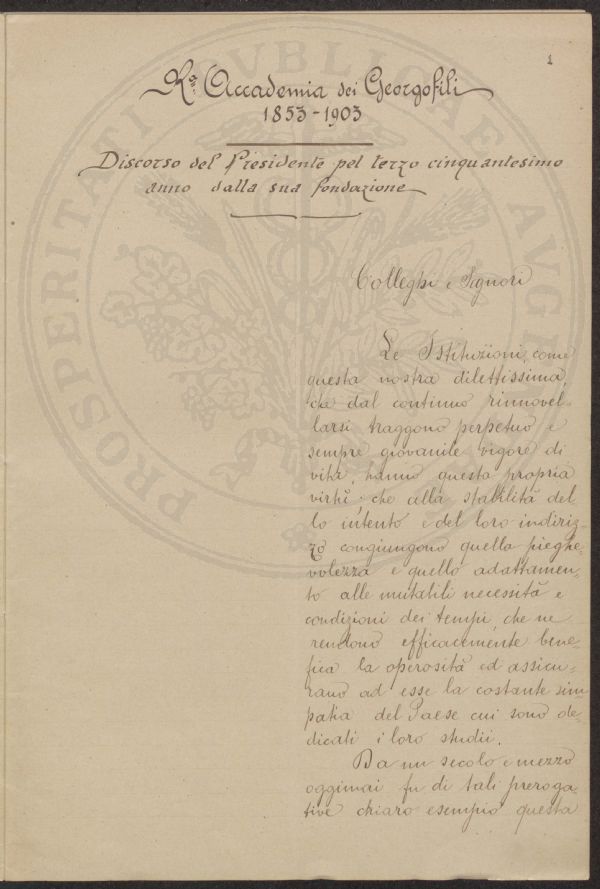 1
Rª Accademia dei Georgofili
1853-1903
Discorso del Presidente pel terzo cinquantesimo
anno dalla sua fondazione
Colleghi e Signori
Le Istituzioni, come
questa nostra dilettissima,
che dal continuo rinnovel-
larsi traggono perpetuo e
sempre giovanile vigore di
vita, hanno questa propria
virtù; che alla stabilità del
lo intento e del loro indiriz-
zo congiungono quella pieghe-
volezza e quello adattamen-
to alle mutabili necessità e
condizioni dei tempi, che ne
rendono efficacemente bene-
fica la operosità ed assicu-
rano ad esse la costante sim
patia del Paese cui sono de-
dicati i loro studii.
Da un secolo e mezzo
oggimai fu di tali preroga-
tive chiaro esempio questa
PROSPERITATI PVBLICAE AVGENDAE